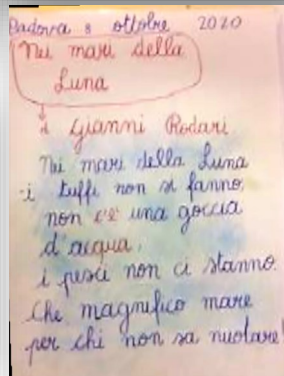 Padova 8 ottobre 2020
Nei mari della
Luna
di Gianni Rodari
Nei mari della Luna
i tuffi non si fanno,
non c'è una goccia
d'acqua,
i pesci non ci stanno.
Che magnifico mare
per chi non sa nuotare!